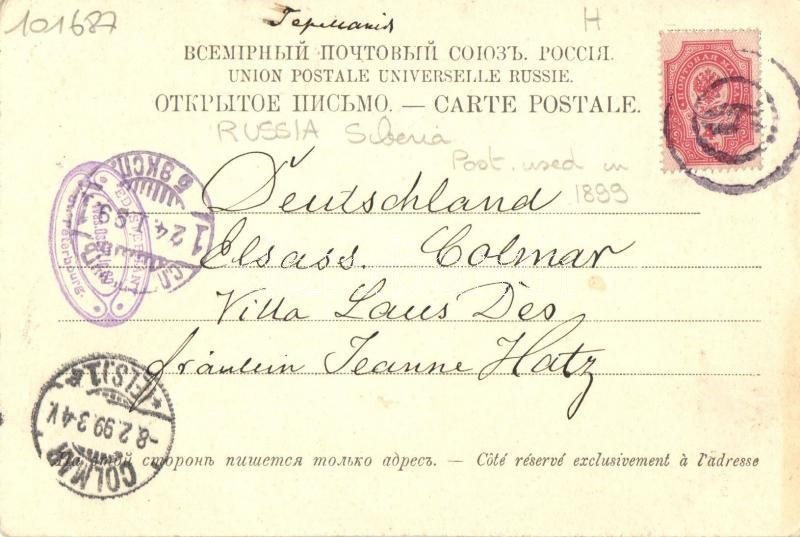 101687
Германія
H
ВСЕМІРНЫЙ ПОЧТОВЫЙ СОЮЗЪ. РОССІЯ.
UNION POSTALE UNIVERSELLE RUSSIE.
ОТКРЫТОЕ ПИСЬМО. — CARTE POSTALE.
RUSSIA Siberia
Post. used in
1899
ПОЧТОВАЯ МАРКА
Deutschland
Elsass. Colmar
Villa Laus Deo
fräulein Jeanne Hatz
6 ЭКСП.
1 24 99
St. Péterbourg.
COLMAR (ELS) 1
8.2.99.3-4 N.
На этой сторонѣ пишется только адресъ. — Côté réservé exclusivement à l'adresse